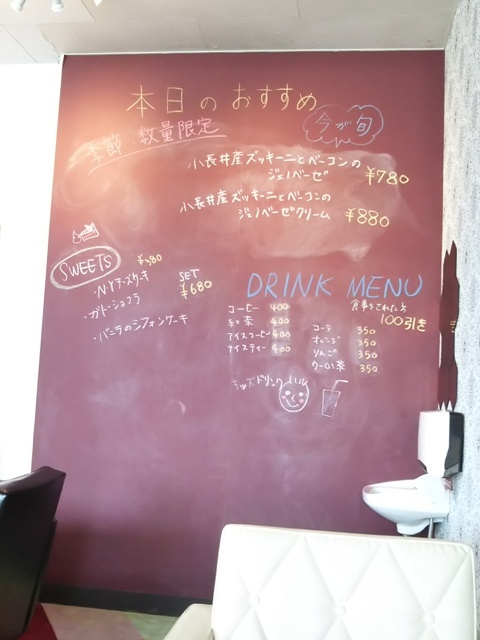 本日のおすすめ
季節 数量限定
今が旬
小長井産ズッキーニとベーコンの
ジェノベーゼ ¥780
小長井産ズッキーニとベーコンの
ジェノベーゼクリーム ¥880
SWEETS ¥380
・N.Yチーズケーキ
・ガトーショコラ
・バニラのシフォンケーキ
SET
¥680
DRINK MENU
食事をされた方
100引き
コーヒー 400
紅茶 400
アイスコーヒー 400
アイスティー 400
コーラ 350
オレンジ 350
りんご 350
ウーロン茶 350
キッズドリンク